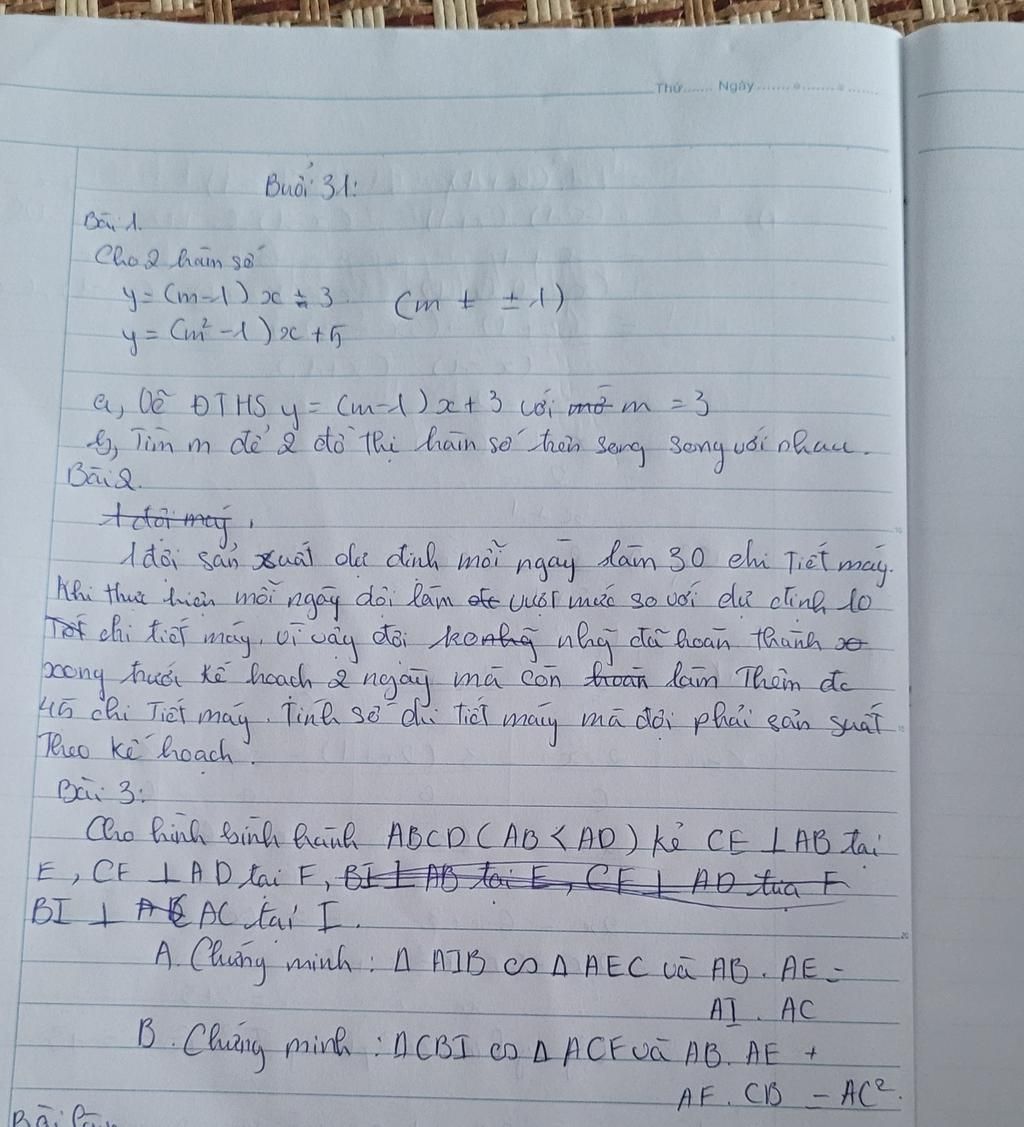 Thứ....... Ngày..................
Buổi 31:
Bài 1.
Cho 2 hàm số
y = (m-1) x + 3 (m ≠ ±1)
y = (m² - 1) x + 5
a, Vẽ ĐTHS y = (m-1) x + 3 với m = 3
b, Tìm m để 2 đồ thị hàm số trên song song với nhau.
Bài 2.
1 đội máy,
1 đội sản xuất dự định mỗi ngày làm 30 chi tiết máy.
Khi thực hiện mỗi ngày đội làm vượt mức so với dự định 10
chi tiết máy, vì vậy đội nhg đã hoàn thành
xong trước kế hoạch 2 ngày mà còn làm thêm đc
45 chi tiết máy. Tính số chi tiết máy mà đội phải sản suất
Theo kế hoạch.
Bài 3:
Cho hình bình hành ABCD (AB < AD) kẻ CE ⊥ AB tại
E, CF ⊥ AD tại F, BI ⊥ AB tại E, CF ⊥ AD tại F
BI ⊥ AC tại I.
A. Chứng minh : Δ AIB ∽ Δ AEC và AB . AE =
AI . AC
B. Chứng minh : Δ CBI ∽ Δ ACF và AB . AE +
AF . CB = AC².
Bài